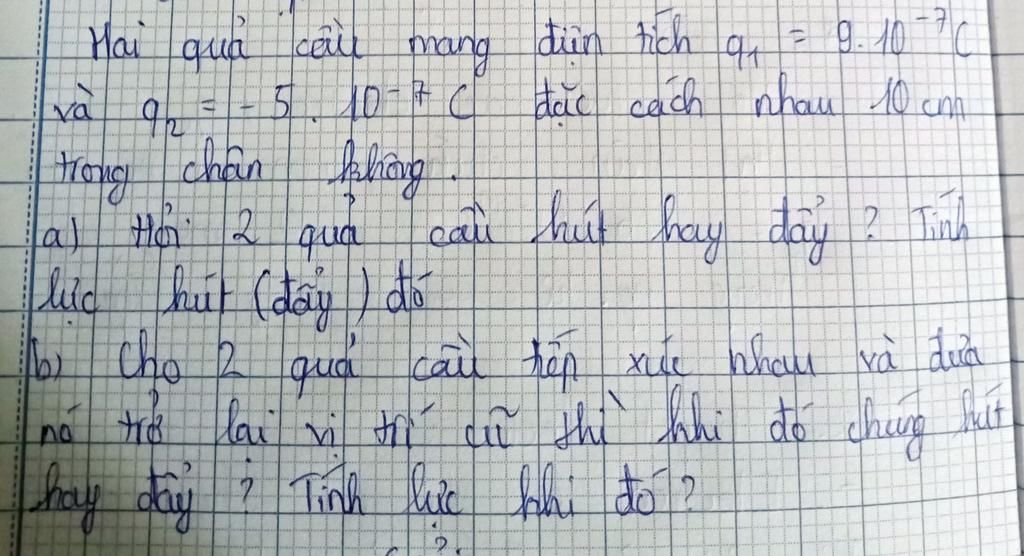 Hai quả cầu mang điện tích q₁ = 9. 10⁻⁷ C
và q₂ = - 5. 10⁻⁷ C đặc cách nhau 10 cm
trong chân không.
a) Hỏi 2 quả cầu hút hay đẩy ? Tính
lực hút (đẩy) đó
b) Cho 2 quả cầu tiếp xúc nhau và đưa
nó trở lại vị trí cũ thì khi đó chúng hút
hay đẩy ? Tính lực khi đó ?